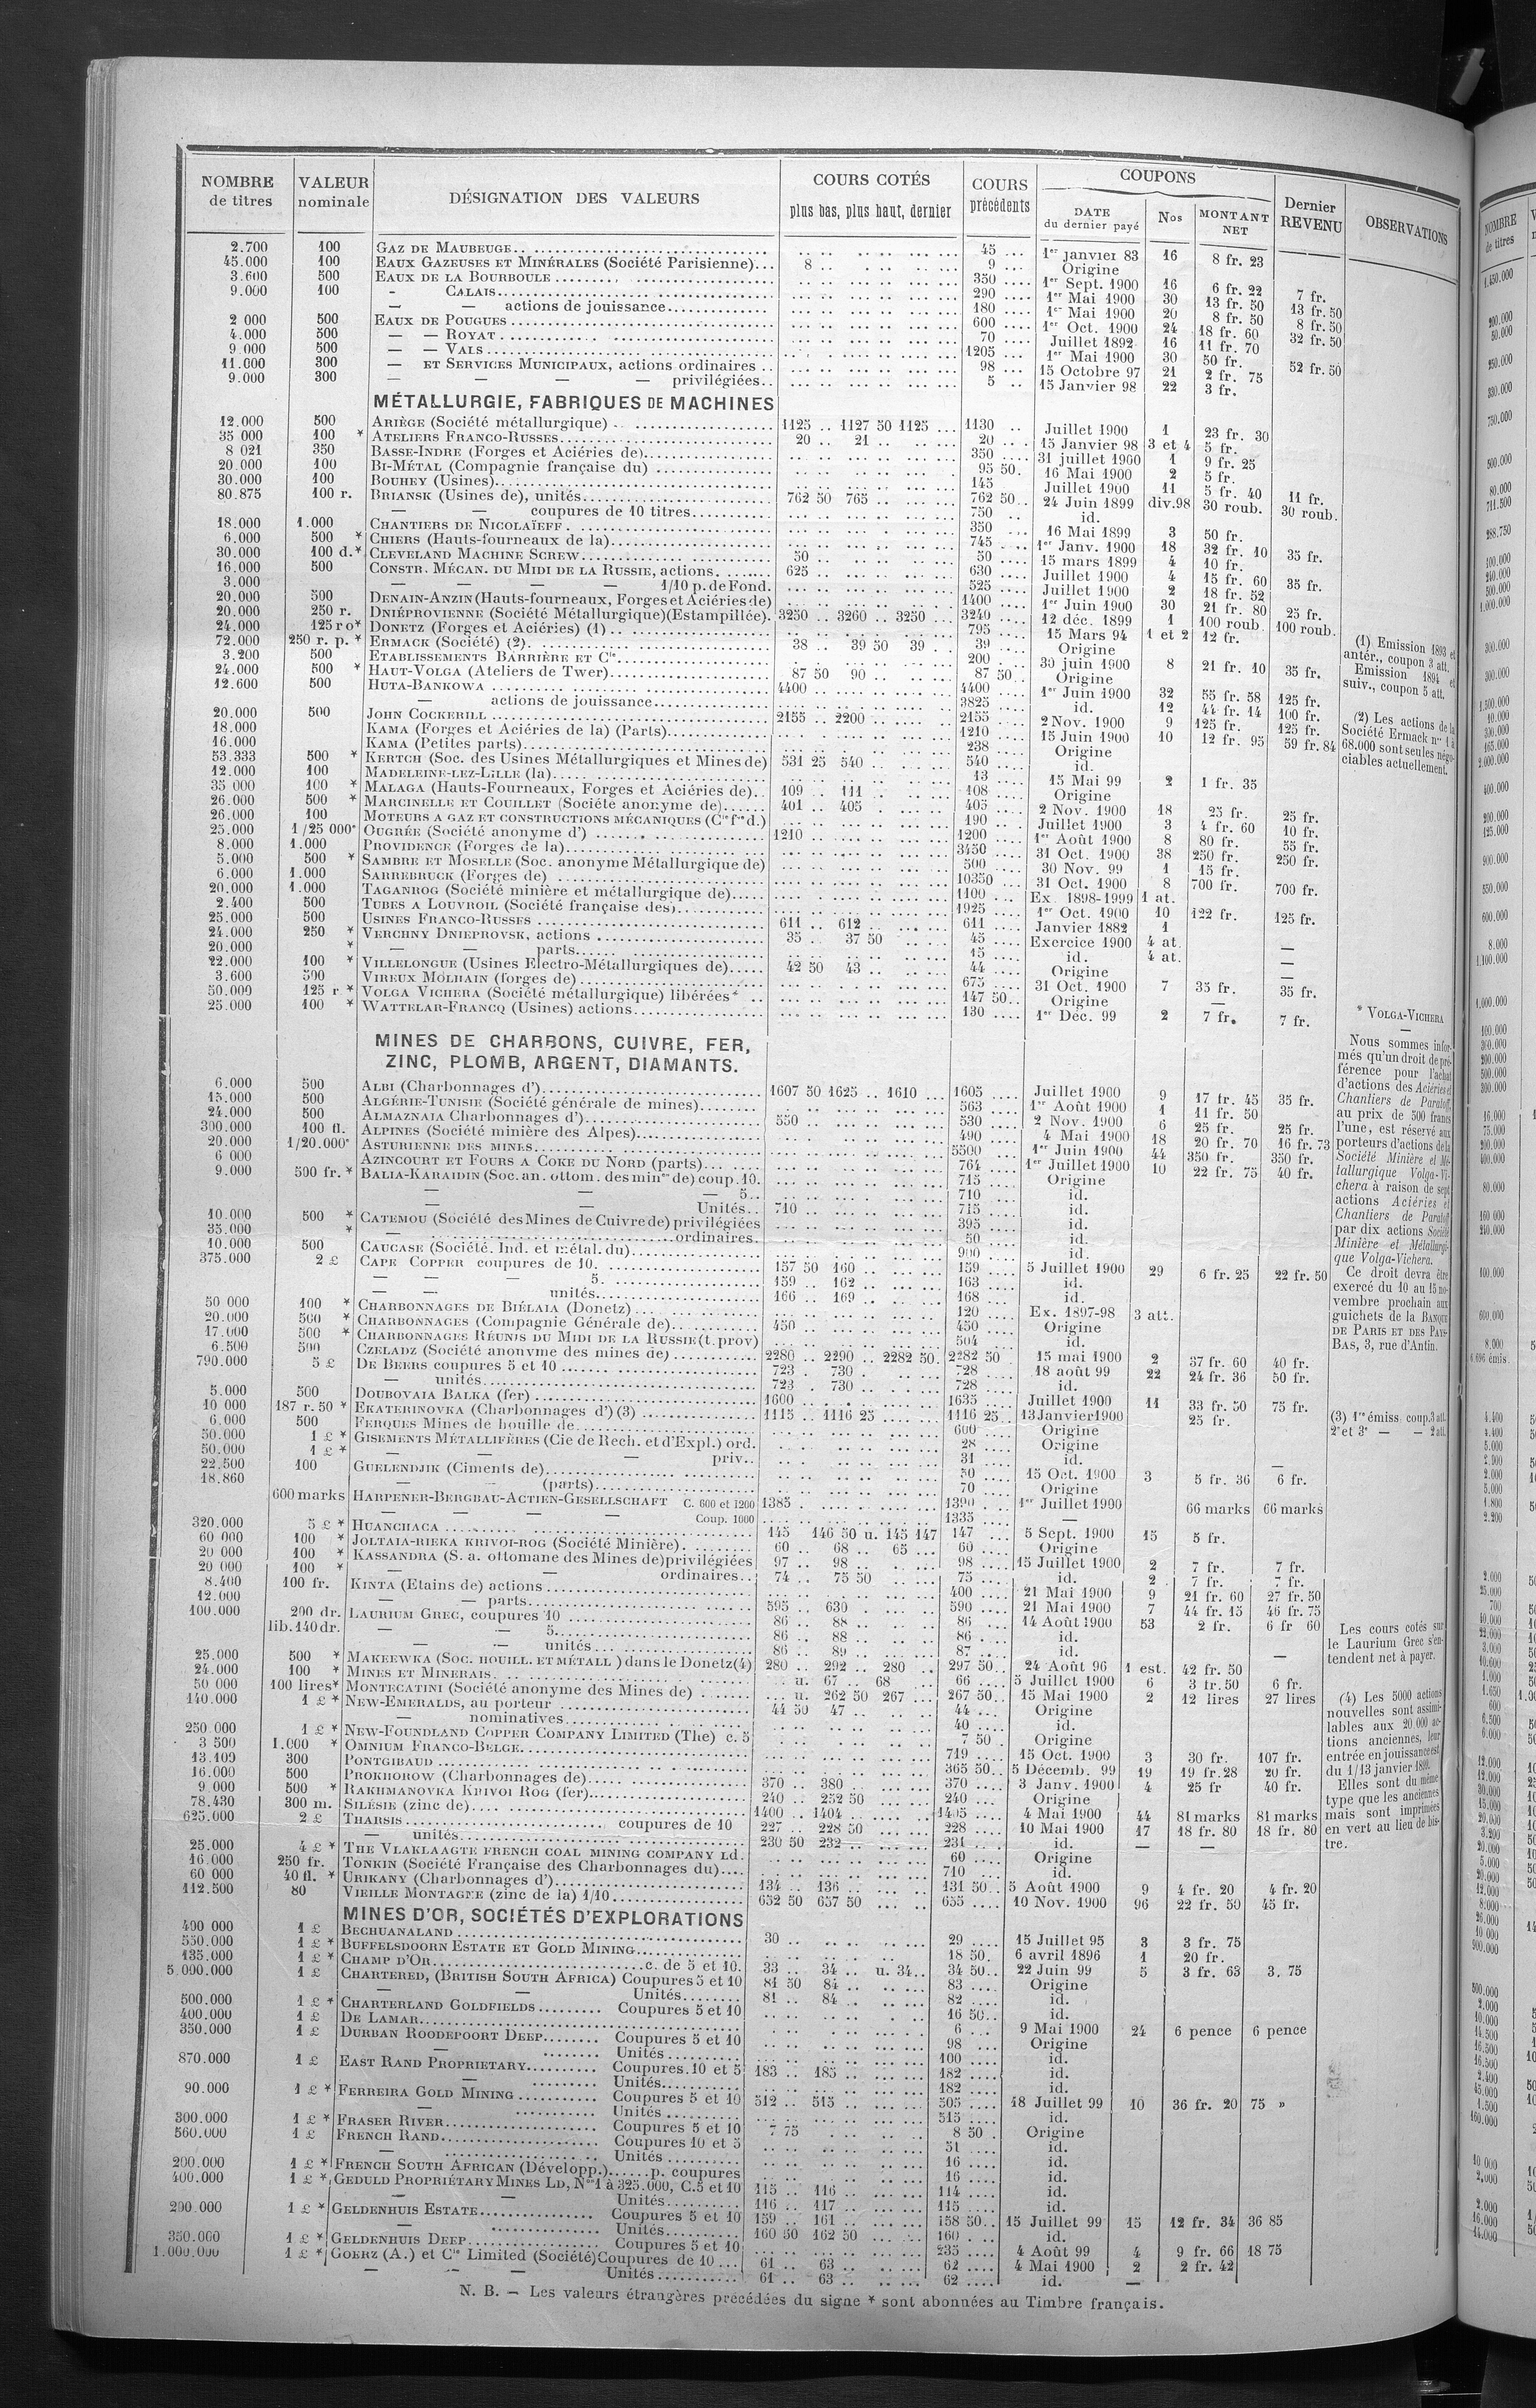 NOMBRE de titres | VALEUR nominale | DÉSIGNATION DES VALEURS | COURS COTÉS plus bas, plus haut, dernier | COURS précédents | COUPONS DATE du dernier payé | Nos | MONTANT NET | Dernier REVENU | OBSERVATIONS
2.700 100 GAZ DE MAUBEUGE 45 1er janvier 83 16 8 fr. 23
45.000 100 EAUX GAZEUSES ET MINÉRALES (Société Parisienne) 8 9 Origine
3.600 500 EAUX DE LA BOURBOULE 350 1er Sept. 1900 16 6 fr. 22 7 fr.
9.000 100 - CALAIS 290 1er Mai 1900 30 13 fr. 50 13 fr. 50
— — actions de jouissance 180 1er Mai 1900 20 8 fr. 50 8 fr. 50
2 000 500 EAUX DE POUGUES 600 1er Oct. 1900 24 18 fr. 60 32 fr. 50
4.000 500 — — ROYAT 70 Juillet 1892 16 11 fr. 70
9.000 500 — — VALS 1205 1er Mai 1900 30 50 fr. 52 fr. 50
11.000 300 — ET SERVICES MUNICIPAUX, actions ordinaires 98 15 Octobre 97 21 2 fr. 75
9.000 300 — — — — privilégiées 5 15 Janvier 98 22 3 fr.
MÉTALLURGIE, FABRIQUES DE MACHINES
12.000 500 ARIÈGE (Société métallurgique) 1125 1127 50 1125 1130 Juillet 1900 1 23 fr. 30
35 000 100 * ATELIERS FRANCO-RUSSES 20 21 20 15 Janvier 98 3 et 4 5 fr.
8 021 350 BASSE-INDRE (Forges et Aciéries de) 350 31 juillet 1900 1 9 fr. 25
20.000 100 BI-MÉTAL (Compagnie française du) 95 50 16 Mai 1900 2 5 fr.
30.000 100 BOUHEY (Usines) 145 Juillet 1900 11 5 fr. 40 11 fr.
80.875 100 r. BRIANSK (Usines de), unités 762 50 765 762 50 24 Juin 1899 div.98 30 roub. 30 roub.
— — coupures de 10 titres 750 id.
18.000 1.000 CHANTIERS DE NICOLAÏEFF 350 16 Mai 1899 3 50 fr.
6.000 500 * CHIERS (Hauts-fourneaux de la) 745 1er Janv. 1900 18 32 fr. 10 35 fr.
30.000 100 d.* CLEVELAND MACHINE SCREW 50 50 15 mars 1899 4 10 fr.
16.000 500 CONSTR. MÉCAN. DU MIDI DE LA RUSSIE, actions 625 630 Juillet 1900 4 15 fr. 60 35 fr.
3.000 — — — — 1/10 p. de Fond. 525 Juillet 1900 2 18 fr. 52
20.000 500 DENAIN-ANZIN (Hauts-fourneaux, Forges et Aciéries de) 1400 1er Juin 1900 30 21 fr. 80 25 fr.
20.000 250 r. DNIÉPROVIENNE (Société Métallurgique) (Estampillée) 3250 3260 3250 3240 12 déc. 1899 1 100 roub. 100 roub.
24.000 125 r o* DONETZ (Forges et Aciéries) (1) 795 15 Mars 94 1 et 2 12 fr.
72.000 250 r. p. * ERMACK (Société) (2) 38 39 50 39 39 Origine
3.200 500 ETABLISSEMENTS BARRIÈRE ET Cie 200 30 juin 1900 8 21 fr. 10 35 fr.
24.000 500 * HAUT-VOLGA (Ateliers de Twer) 87 50 90 87 50 Origine
12.600 500 HUTA-BANKOWA 4400 4400 1er Juin 1900 32 55 fr. 58 125 fr.
— actions de jouissance 3825 id. 12 44 fr. 14 100 fr.
20.000 500 JOHN COCKERILL 2155 2200 2155 2 Nov. 1900 9 125 fr. 125 fr.
18.000 KAMA (Forges et Aciéries de la) (Parts) 1210 15 Juin 1900 10 12 fr. 95 59 fr. 84
16.000 KAMA (Petites parts) 238 Origine
53.333 500 * KERTCH (Soc. des Usines Métallurgiques et Mines de) 531 25 540 540 id.
12.000 100 MADELEINE-LEZ-LILLE (la) 13 15 Mai 99 2 1 fr. 35
35 000 100 * MALAGA (Hauts-Fourneaux, Forges et Aciéries de) 109 111 108 Origine
26.000 500 * MARCINELLE ET COUILLET (Société anonyme de) 401 405 405 2 Nov. 1900 18 25 fr. 25 fr.
26.000 100 MOTEURS A GAZ ET CONSTRUCTIONS MÉCANIQUES (Cie fse d.) 190 Juillet 1900 3 4 fr. 60 10 fr.
25.000 1/25 000e OUGRÉE (Société anonyme d') 1210 1200 1er Août 1900 8 80 fr. 55 fr.
8.000 1.000 PROVIDENCE (Forges de la) 3450 31 Oct. 1900 38 250 fr. 250 fr.
5.000 500 * SAMBRE ET MOSELLE (Soc. anonyme Métallurgique de) 500 30 Nov. 99 1 15 fr.
6.000 1.000 SARREBRUCK (Forges de) 10350 31 Oct. 1900 8 700 fr. 700 fr.
20.000 1.000 TAGANROG (Société minière et métallurgique de) 1100 Ex. 1898-1999 1 at.
2.400 500 TUBES A LOUVROIL (Société française des) 1925 1er Oct. 1900 10 122 fr. 125 fr.
25.000 500 USINES FRANCO-RUSSES 611 612 611 Janvier 1882 1
24.000 250 * VERCHNY DNIEPROVSK, actions 35 37 50 45 Exercice 1900 4 at. —
20.000 * — — parts 15 id. 4 at. —
22.000 100 * VILLELONGUE (Usines Electro-Métallurgiques de) 42 50 43 44 Origine —
3.600 500 VIREUX MOLHAIN (forges de) 675 31 Oct. 1900 7 35 fr. 35 fr.
50.000 125 r. * VOLGA VICHERA (Société métallurgique) libérées* 147 50 Origine —
25.000 100 * WATTELAR-FRANCQ (Usines) actions 130 1er Déc. 99 2 7 fr. 7 fr.
MINES DE CHARBONS, CUIVRE, FER,
ZINC, PLOMB, ARGENT, DIAMANTS.
6.000 500 ALBI (Charbonnages d') 1607 50 1625 1610 1605 Juillet 1900 9 17 fr. 45 35 fr.
15.000 500 ALGÉRIE-TUNISIE (Société générale de mines) 563 1er Août 1900 1 11 fr. 50
24.000 500 ALMAZNAIA Charbonnages d') 550 530 2 Nov. 1900 6 25 fr. 25 fr.
300.000 100 fl. ALPINES (Société minière des Alpes) 490 4 Mai 1900 18 20 fr. 70 16 fr. 73
20.000 1/20.000e ASTURIENNE DES MINES 5500 1er Juin 1900 44 350 fr. 350 fr.
6 000 AZINCOURT ET FOURS A COKE DU NORD (parts) 764 1er Juillet 1900 10 22 fr. 75 40 fr.
9.000 500 fr. * BALIA-KARAIDIN (Soc. an. ottom. des mines de) coup. 10. 715 Origine
— — — 5 710 id.
— — Unités 710 715 id.
10.000 500 * CATEMOU (Société des Mines de Cuivre de) privilégiées 395 id.
35.000 * — ordinaires 50 id.
10.000 500 CAUCASE (Société. Ind. et métal. du) 900 id.
375.000 2 £ CAPE COPPER coupures de 10. 157 50 160 159 5 Juillet 1900 29 6 fr. 25 22 fr. 50
— — — 5. 159 162 163 id.
— — unités 166 169 168 id.
50 000 100 * CHARBONNAGES DE BIÉLAIA (Donetz) 120 Ex. 1897-98 3 att.
20.000 500 * CHARBONNAGES (Compagnie Générale de) 450 450 Origine
17.000 500 * CHARBONNAGES RÉUNIS DU MIDI DE LA RUSSIE (t. prov) 504 id.
6.500 500 CZELADZ (Société anonyme des mines de) 2280 2290 2282 50 2282 50 15 mai 1900 2 37 fr. 60 40 fr.
790.000 5 £ DE BEERS coupures 5 et 10 723 730 728 18 août 99 22 24 fr. 36 50 fr.
— unités 723 730 728 id.
5.000 500 DOUBOVAIA BALKA (fer) 1600 1635 Juillet 1900 11 33 fr. 50 75 fr.
10 000 187 r. 50 * EKATERINOVKA (Charbonnages d') (3) 1115 1116 25 1116 25 13 Janvier 1900 25 fr.
6.000 500 FERQUES Mines de houille de 600 Origine
50.000 1 £ * GISEMENTS MÉTALLIFÈRES (Cie de Rech. et d'Expl.) ord. 28 Origine
50.000 1 £ * — — — priv. 31 id. —
22.500 100 GUELENDJIK (Ciments de) 50 15 Oct. 1900 3 5 fr. 36 6 fr.
18.860 — — (parts) 70 Origine
600 marks HARPENER-BERGBAU-ACTIEN-GESELLSCHAFT C. 600 et 1200 1385 1390 1er Juillet 1900 66 marks 66 marks
— — — — Coup. 1000 1335 —
320.000 5 £ * HUANCHACA 145 146 50 u. 145 147 147 5 Sept. 1900 15 5 fr.
60 000 100 * JOLTAIA-RIEKA KRIVOI-ROG (Société Minière) 60 68 65 60 Origine
20 000 100 * KASSANDRA (S. a. ottomane des Mines de) privilégiées 97 98 98 15 Juillet 1900 2 7 fr. 7 fr.
20 000 100 * — — ordinaires 74 75 50 75 id. 2 7 fr. 7 fr.
8.400 100 fr. KINTA (Etains de) actions 400 21 Mai 1900 9 21 fr. 60 27 fr. 50
12.000 — — parts 595 630 590 21 Mai 1900 7 44 fr. 15 46 fr. 75
100.000 200 dr. LAURIUM GREC, coupures 10 86 88 86 14 Août 1900 53 2 fr. 6 fr 60
lib. 140 dr. — — 5 86 88 86 id.
— — unités 86 89 87 id. —
25.000 500 * MAKEEWKA (SOC. HOUILL. ET MÉTALL ) dans le Donetz (4) 280 292 280 297 50 24 Août 96 1 est. 42 fr. 50
24.000 100 * MINES ET MINERAIS u. 67 68 66 5 Juillet 1900 6 3 fr. 50 6 fr.
50 000 100 lires* MONTECATINI (Société anonyme des Mines de) u. 262 50 267 267 50 15 Mai 1900 2 12 lires 27 lires
140.000 1 £ * NEW-EMERALDS, au porteur 44 50 47 44 Origine
— nominatives 40 id.
250 000 1 £ * NEW-FOUNDLAND COPPER COMPANY LIMITED (The) c. 5 7 50 Origine
3 500 1.000 * OMNIUM FRANCO-BELGE 719 15 Oct. 1900 3 30 fr. 107 fr.
13.109 300 PONTGIBAUD 365 50 5 Décemb. 99 19 19 fr. 28 20 fr.
16.000 500 PROKHOROW (Charbonnages de) 370 380 370 3 Janv. 1900 4 25 fr 40 fr.
9.000 500 * RAKHMANOVKA KRIVOI ROG (fer) 240 252 50 240 Origine
78.430 300 m. SILÉSIE (zinc de) 1400 1404 1405 4 Mai 1900 44 81 marks 81 marks
625.000 2 £ THARSIS coupures de 10 227 228 50 228 10 Mai 1900 17 18 fr. 80 18 fr. 80
— unités 230 50 232 231 id. — —
25.000 4 £ * THE VLAKLAAGTE FRENCH COAL MINING COMPANY LD. 60 Origine
16.000 250 fr. TONKIN (Société Française des Charbonnages du) 710 id.
60 000 40 fl. * URIKANY (Charbonnages d') 134 136 131 50 5 Août 1900 9 4 fr. 20 4 fr. 20
112.500 80 VIEILLE MONTAGNE (zinc de la) 1/10 652 50 657 50 655 10 Nov. 1900 96 22 fr. 50 45 fr.
MINES D'OR, SOCIÉTÉS D'EXPLORATIONS
400 000 1 £ BECHUANALAND 30 29 15 Juillet 95 3 3 fr. 75
550.000 1 £ * BUFFELSDOORN ESTATE ET GOLD MINING 18 50 6 avril 1896 1 20 fr.
135.000 1 £ * CHAMP D'OR c. de 5 et 10. 33 34 u. 34 34 50 22 Juin 99 5 3 fr. 63 3. 75
5.000.000 1 £ CHARTERED, (BRITISH SOUTH AFRICA) Coupures 5 et 10 81 50 84 83 Origine
— — Unités 81 84 82 id.
500.000 1 £ * CHARTERLAND GOLDFIELDS Coupures 5 et 10 16 50 id.
400.000 1 £ DE LAMAR 6 9 Mai 1900 24 6 pence 6 pence
350.000 1 £ DURBAN ROODEPOORT DEEP Coupures 5 et 10 98 Origine
— Unités 100 id.
870.000 1 £ EAST RAND PROPRIETARY Coupures. 10 et 5 183 185 182 id.
— Unités 182 id.
90.000 1 £ * FERREIRA GOLD MINING Coupures 5 et 10 512 515 505 18 Juillet 99 10 36 fr. 20 75 »
— Unités 515 id.
300.000 1 £ * FRASER RIVER Coupures 5 et 10 7 75 8 50 Origine
560.000 1 £ FRENCH RAND Coupures 10 et 5 51 id.
— Unités 16 id.
200.000 1 £ * FRENCH SOUTH AFRICAN (Développ.) p. coupures 16 id.
400.000 1 £ * GEDULD PROPRIÉTARY MINES LD, Nos 1 à 325.000, C. 5 et 10 115 116 114 id.
— — Unités 116 117 115 id.
200.000 1 £ * GELDENHUIS ESTATE Coupures 5 et 10 159 161 158 50 15 Juillet 99 15 12 fr. 34 36 85
— Unités 160 50 162 50 160 id.
350.000 1 £ * GELDENHUIS DEEP Coupures 5 et 10 235 4 Août 99 4 9 fr. 66 18 75
1.000.000 1 £ * GOERZ (A.) et Cie Limited (Société) Coupures de 10 61 63 62 4 Mai 1900 2 2 fr. 42
— — — Unités 61 63 62 id. —
N. B. — Les valeurs étrangères précédées du signe * sont abonnées au Timbre français.
(1) Emission 1893 et
antér., coupon 3 att.
Emission 1894 et
suiv., coupon 5 att.
(2) Les actions de la
Société Ermack nos 1 à
68.000 sont seules négo-
ciables actuellement.
* VOLGA-VICHERA
—
Nous sommes infor-
més qu'un droit de pré-
férence pour l'achat
d'actions des Aciéries et
Chantiers de Paratoff,
au prix de 500 francs
l'une, est réservé aux
porteurs d'actions de la
Société Minière et Mé-
tallurgique Volga-Vi-
chera à raison de sept
actions Aciéries et
Chantiers de Paratoff
par dix actions Société
Minière et Métallurgi-
que Volga-Vichera.
Ce droit devra être
exercé du 10 au 15 no-
vembre prochain aux
guichets de la BANQUE
DE PARIS ET DES PAYS-
BAS, 3, rue d'Antin.
(3) 1re émiss. coup. 3 att.
2e et 3e — — 2 att.
Les cours cotés sur
le Laurium Grec s'en-
tendent net à payer.
(4) Les 5000 actions
nouvelles sont assimi-
lables aux 20 000 ac-
tions anciennes, leur
entrée en jouissance est
du 1/13 janvier 1899.
Elles sont du même
type que les anciennes
mais sont imprimées
en vert au lieu de bis-
tre.
NOMBRE
de titres